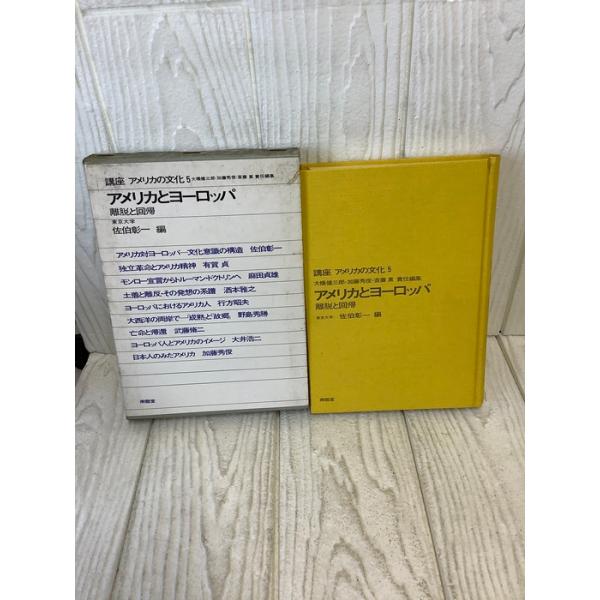 講座 アメリカの文化 5 大橋健三郎・加藤秀俊・斎藤 真 責任編集
アメリカとヨーロッパ
離脱と回帰
東京大学
佐伯彰一 編
アメリカ対ヨーロッパ—文化意識の構造 佐伯彰一
独立革命とアメリカ精神 有賀 貞
モンロー宣言からトルーマン・ドクトリンへ 麻田貞雄
土着と離反・その発想の系譜 酒本雅之
ヨーロッパにおけるアメリカ人 行方昭夫
大西洋の両岸で—「成熟」と「故郷」 野島秀勝
亡命と帰還 武藤脩二
ヨーロッパ人とアメリカのイメージ 大井浩二
日本人のみたアメリカ 加藤秀俊
南雲堂
講座 アメリカの文化 5
大橋健三郎・加藤秀俊・斎藤 真 責任編集
アメリカとヨーロッパ
離脱と回帰
東京大学 佐伯彰一 編
南雲堂